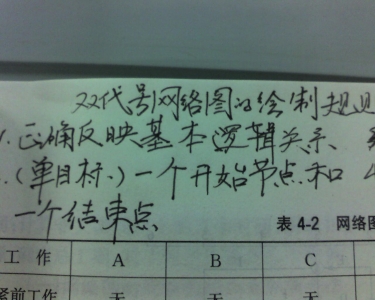 双代号网络图的绘制规
1.正确反映基本逻辑关系
.(单目标.)一个开始节点和
一个结束点
表 4-2 网络图
工 作 A B C
紧前工作 无 无 无